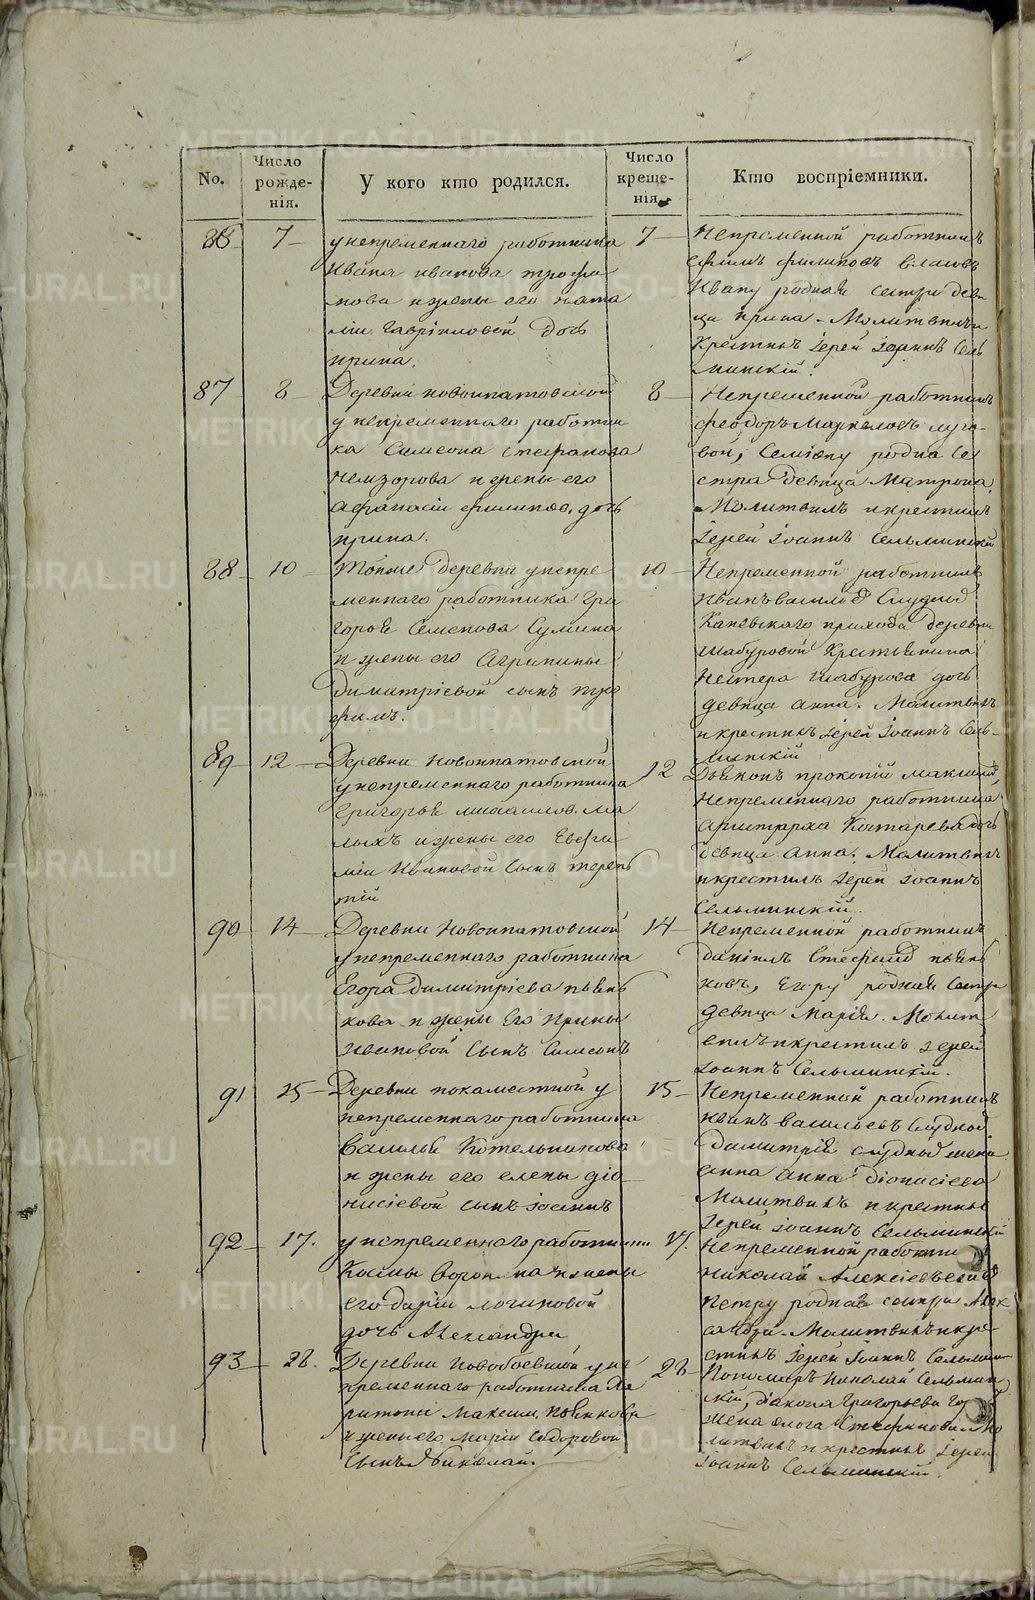 No.
Число рожде-нія.
У кого кто родился.
Число креще-нія.
Кто воспріемники.
86
7
у непременнаго работника
Ивана Иванова трофи
мова и жены его ната
ліи Гавріиловой дочь
ирина.
7
Непременной работникъ
Ефимъ филиповъ власовъ
Ивану родная сестра деви
ца ирина. Молитвилъ и
Крестилъ Іерей Іоаннъ Сель
минскій.
87
8
Деревни новоипатовской
у непременнаго работни
ка Симеона стефанова
его
Афанасіи филипов. дочь
ирина.
8
Непременной работникъ
феодоръ Маркеловъ луго-
вой, Семіону родна се
стра девица Матрона
Молитвилъ и крестилъ
Іерей Іоаннъ Сельминскій
88
10
Тойже деревни у непре
меннаго работника Гри
горья Семенова Сумина
и жены его Агрипины
Димитріевой сынъ
10
Непременной работникъ
Иванъ
прихода деревни
Шабуровой Крестьянина
Нестера Шабурова дочь
девица анна. Молитвилъ
и крестилъ Іерей Іоаннъ Сель-
минскій
89
12
Деревни Новоипатовской
у непременнаго работника
Григорья михаилов. ма
лыхъ и жены его Евфи
міи Ивановой Сынъ терен
тій
12
Дьяконъ прокопій
Непременнаго работника
аристарха Костарева дочь
девица анна. Молитвилъ
и крестилъ Іерей Іоаннъ
Сельминскій.
90
14
Деревни Новоипатовской
у непременнаго работника
Егора Димитріева пьян
кова и жены Его Ирины
Ивановой Сынъ Симеонъ
14
Непременной работникъ
Даніилъ пьян
ковъ, Егору родная сестра
девица Марія. Молит
вилъ и крестилъ Іерей
Іоаннъ Сельминскій.
91
15
Деревни у
непременнаго работника
Василья Котельникова
и жены его елены діо
нисіевой сынъ Іоаннъ
15
Непременной работникъ
Иванъ васильевъ
Димитрія жена
анна діонисіева
Молитвилъ и крестилъ
Іерей Іоаннъ Сельминскій
92
17.
у непременнаго работника
Косьмы и жены
его даріи логиновой
дочь Александра
17.
Непременной работникъ
Николай Алексіевъ
Петру родная сестра Алек
сандра. Молитвилъ и кре
стилъ Іерей Іоаннъ Сельмин
93
28.
Деревни у не
пременнаго работника Ха
ритона Максим. пьянкова
и жены его Маріи Сидоровой
Сынъ Николай.
28
Пономарь Николай Сельмин
скій, діакона Григорьева
жена Мо
литвилъ и крестилъ Іерей
Іоаннъ Сельминскій.
METRIKI.GASO-URAL.RU